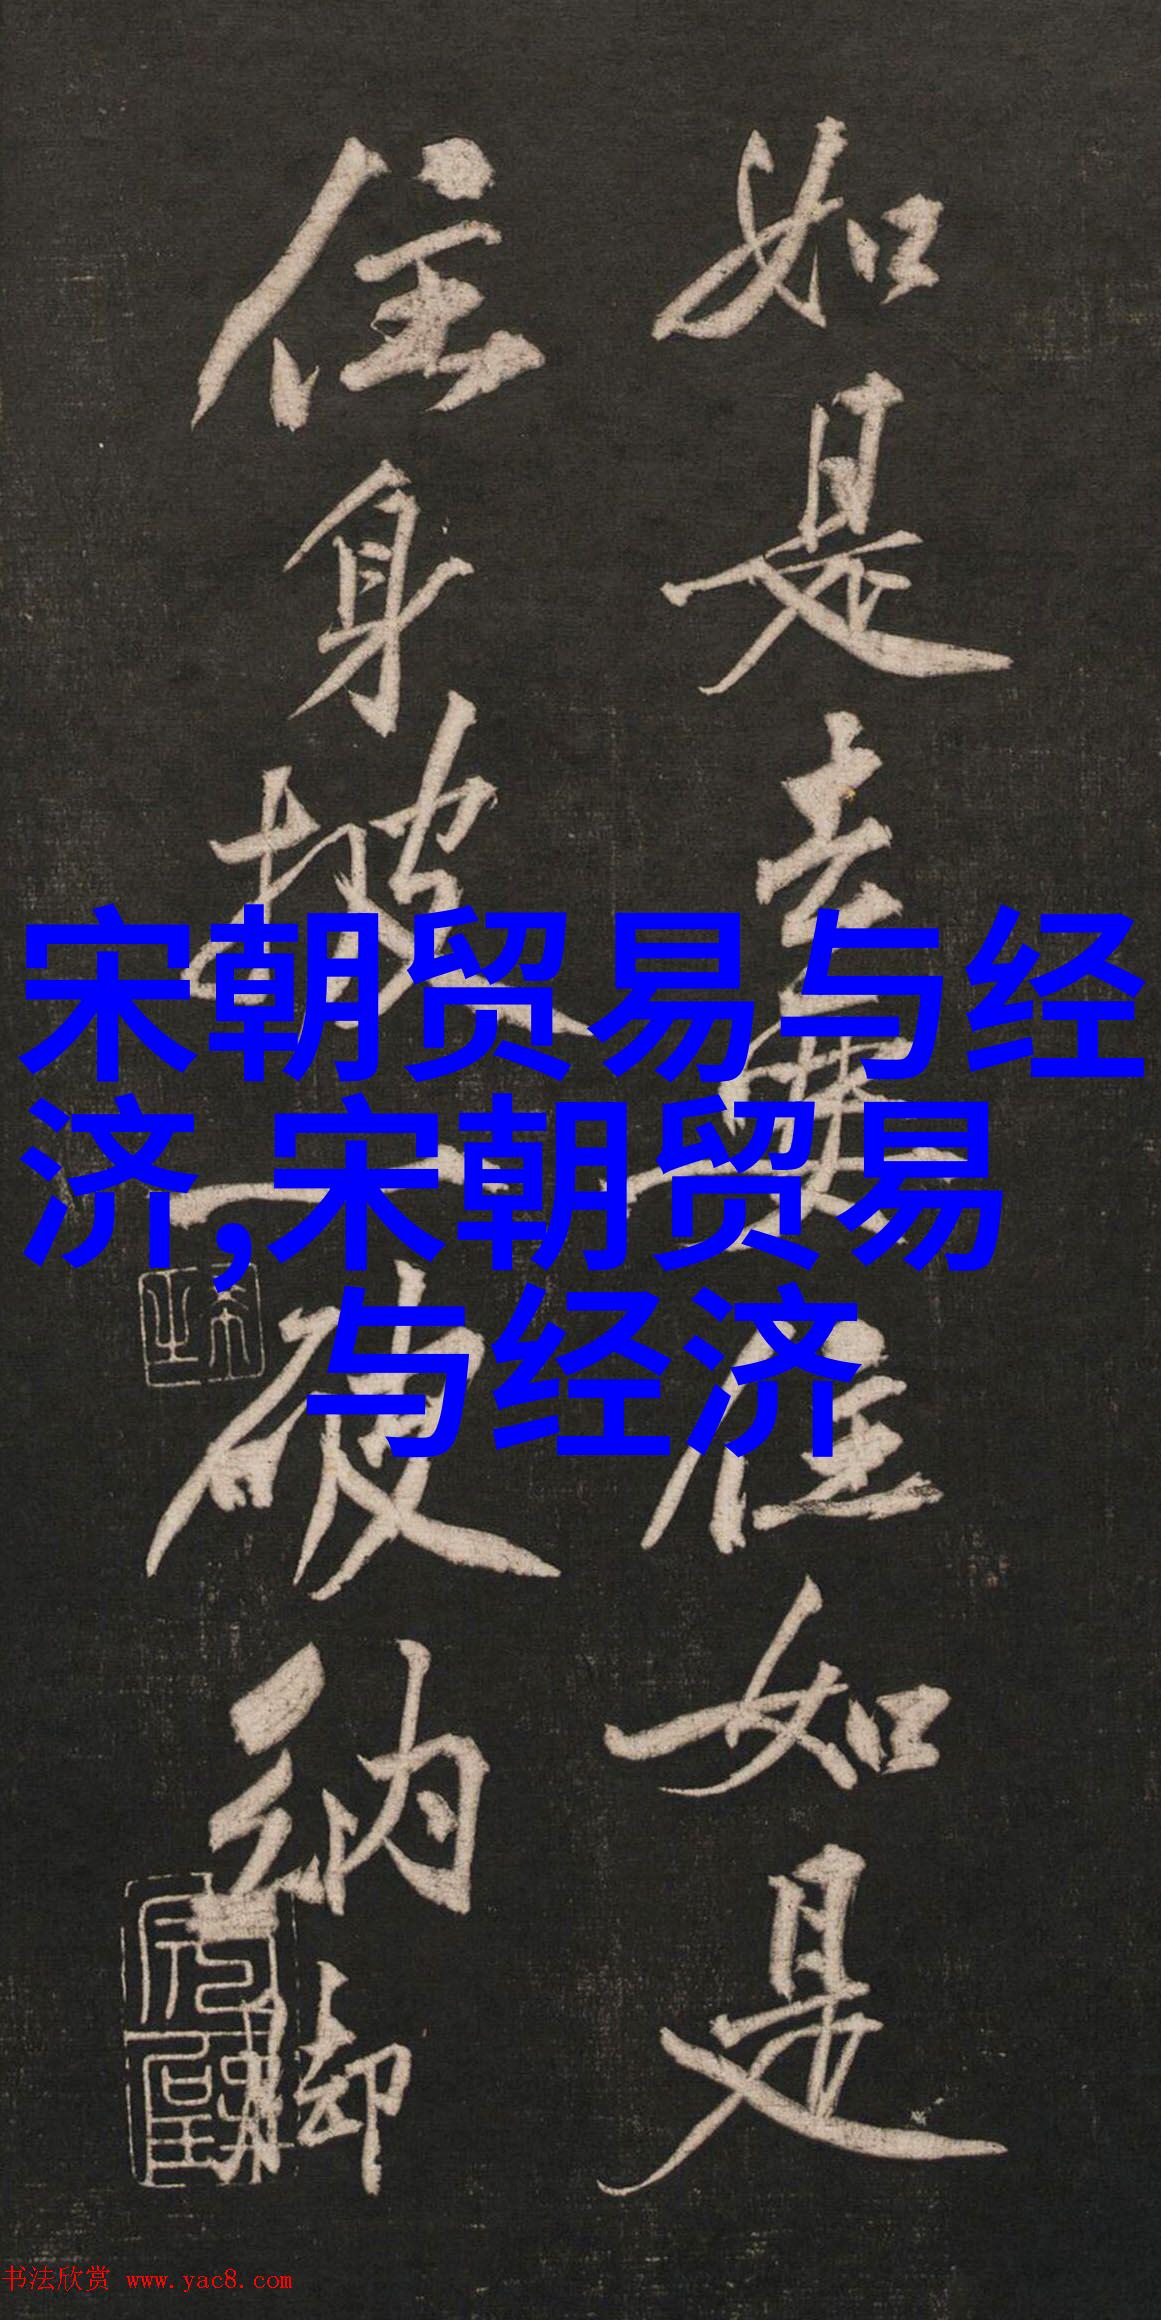 如是去要住如是
住身披一破納脚
宋朝贸易与经
济,宋朝贸易
与经济
书法欣赏 www.yac8.com